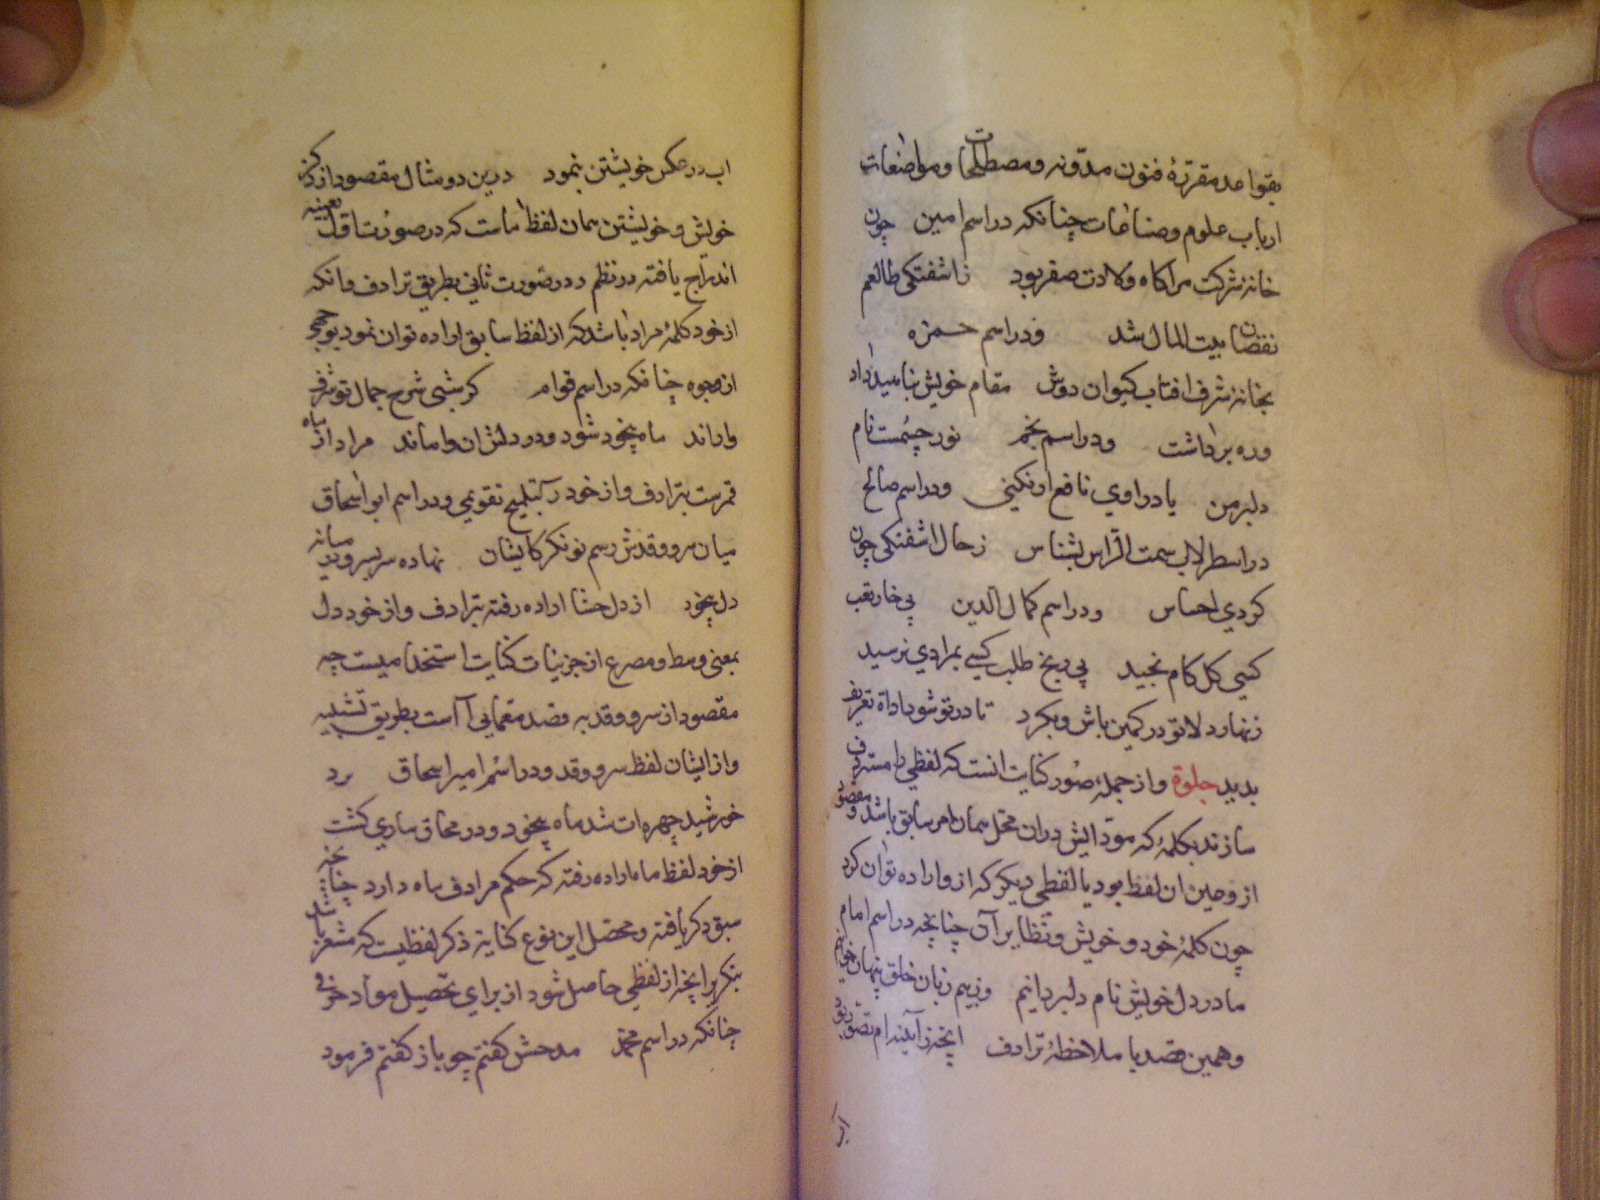 بقواعد مقررهٔ فنون مدونه ومصطلحات ومواضعات
ارباب علوم وصناعات چنانکه در اسم امین چون
خانهٔ شرکت مرا کاه ولادت صفر بود ز اشفتکی طالعم
نقصان بیت المال شد ودر اسم حمزه
بخانهٔ شرف افتاب کیوان دوش مقام خویش بناهید داد
وره برداشت ودر اسم نجم نور چشمت نام
دلبر من یا در اوی نافع او نکنی ودر اسم صالح
در اسطرلاب سمت الراس بشناس ز حال اشفتکی چون
کردی احساس ودر اسم کمال الدین بی خار تعب
کسی کل کام نچید بی رنج طلب کسی بمرادی نرسید
زنهار دلا تو در کمین باش و بکرد تا در تو شود اداة تعریف
بدید جلوة واز جملهٔ صور کنایت انست که لفظی را مستردف
سازند بکلمهٔ که مودایش دران محل همان امر سابق باشد ومقصود
ازو عین ان لفظ بود یا لفظی دیکر که ازو اراده توان کرد
چون کلمهٔ خود و خویش ونظایر آن چنانچه در اسم امام
ما در دل خویش نام دلبر دانیم وز بیم زبان خلق پنهان خوانیم
وهمین قصد با ملاحظهٔ ترادف انچه ز آیینه ام تصور بود
اب در عکس خویشتن بنمود درین دو مثال مقصود از ذکر
خویش و خویشتن همان لفظ ماست که در صورت اول بعینه
اندراج یافته در نظم و در صورت ثانی بطریق ترادف وانکه
از خود کلمهٔ مراد باشد که از لفظ سابق اراده توان نمود بوجهی
از وجوه چنانکه در اسم قوام کر شبی شرح جمال تو قمر
واراند ماه بیخود شود و در دلش ان واماند مراد از ماه
قمرست بترادف واز خود بتلمیح تقویمی ودر اسم ابو اسحاق
میان سرو وقدش رسم نو نکر کایشان نهاده سر بسر ودر میانه
دل بیخود از دل حشا اراده رفته بترادف واز خود دل
بمعنی وسط ومصرع از جزئیات کنایت استخدامیست چه
مقصود از سرو وقد به قصد معمایی آ است بطریق تشبیه
واز ایشان لفظ سرو وقد ودر اسم امیر اسحاق برد
خورشید چهره‌ات شد ماه بیخود و در محاق ساری کشت
از خود لفظ ما اراده رفته که حکم مرادف ماه دارد چنانچه
سبق ذکر یافته ومحصل این نوع کنایة ذکر لفظیست که مشعر باشد
بتکریر انچه از لفظی حاصل شود از برای تحصیل مواد حرفی
چنانکه در اسم محمد مدحش کفتم چو باز کفتم فرمود